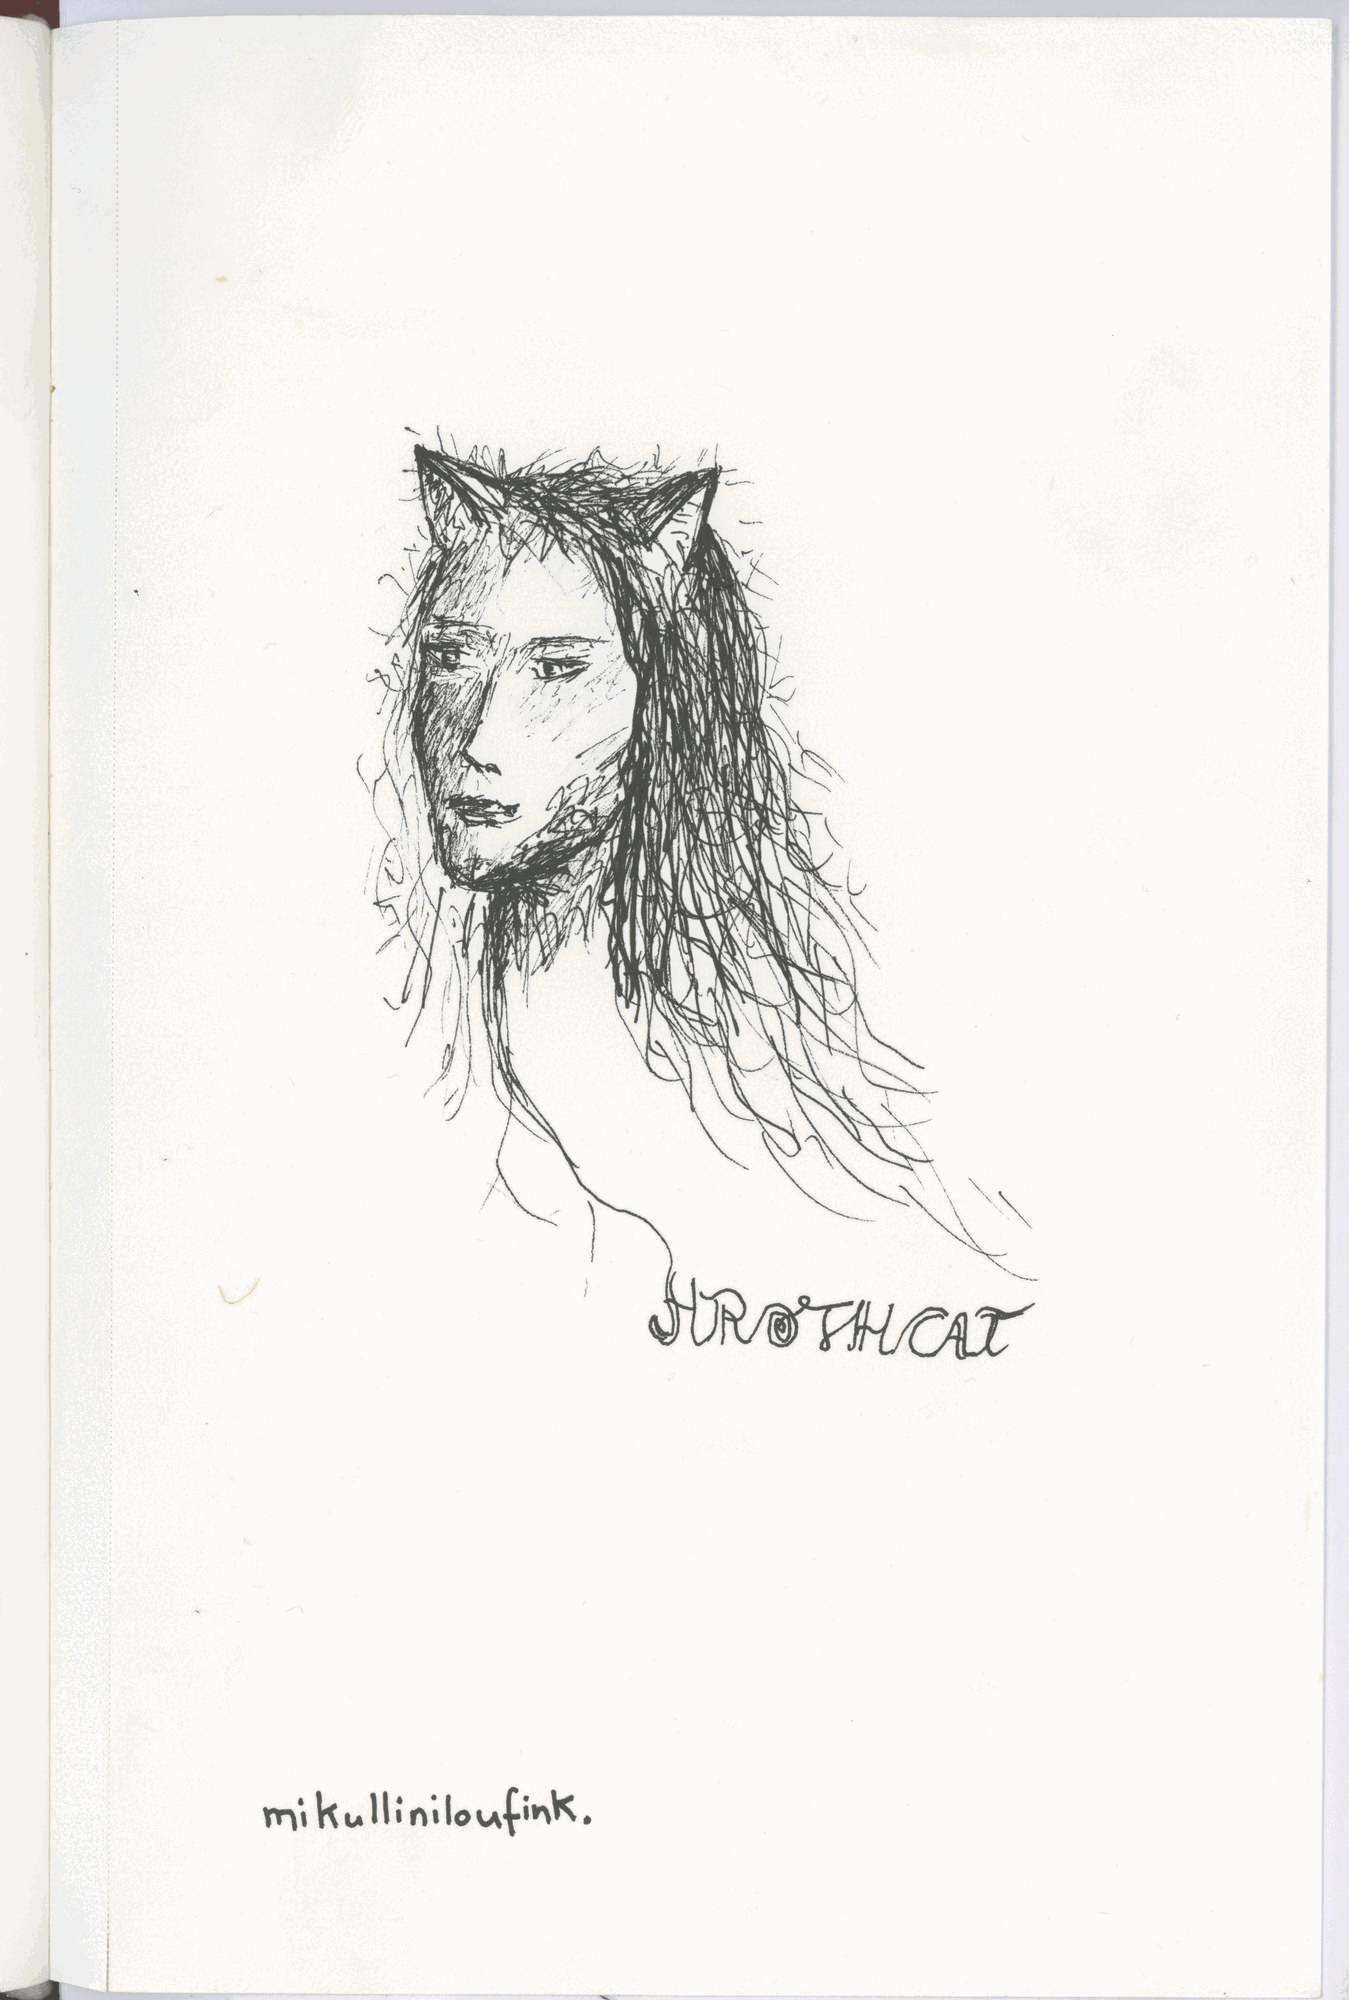 HROTHCAT
mikulliniloufink.